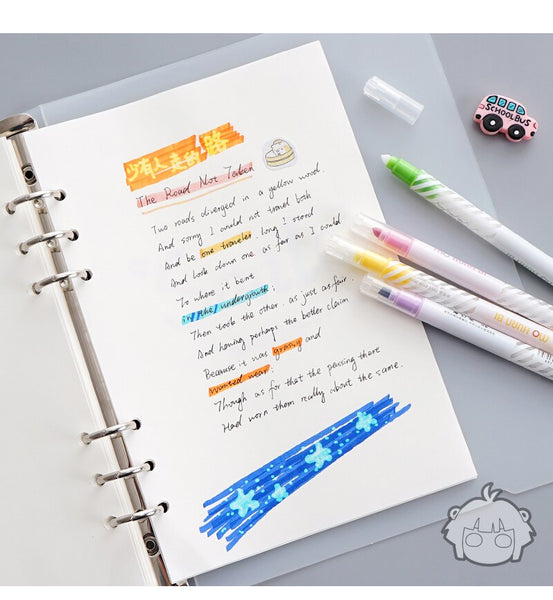 少有人走的路
The Road Not Taken
Two roads diverged in a yellow wood.
And sorry I could not travel both
And be one traveler, long I stood
And look down one as far as I could
To where it bent
in the undergrowth;
Then took the other, as just as fair.
And having perhaps the better claim
Because it was grassy and
wanted wear;
Though as for that the passing there
Had worn them really about the same.
SCHOOLBUS